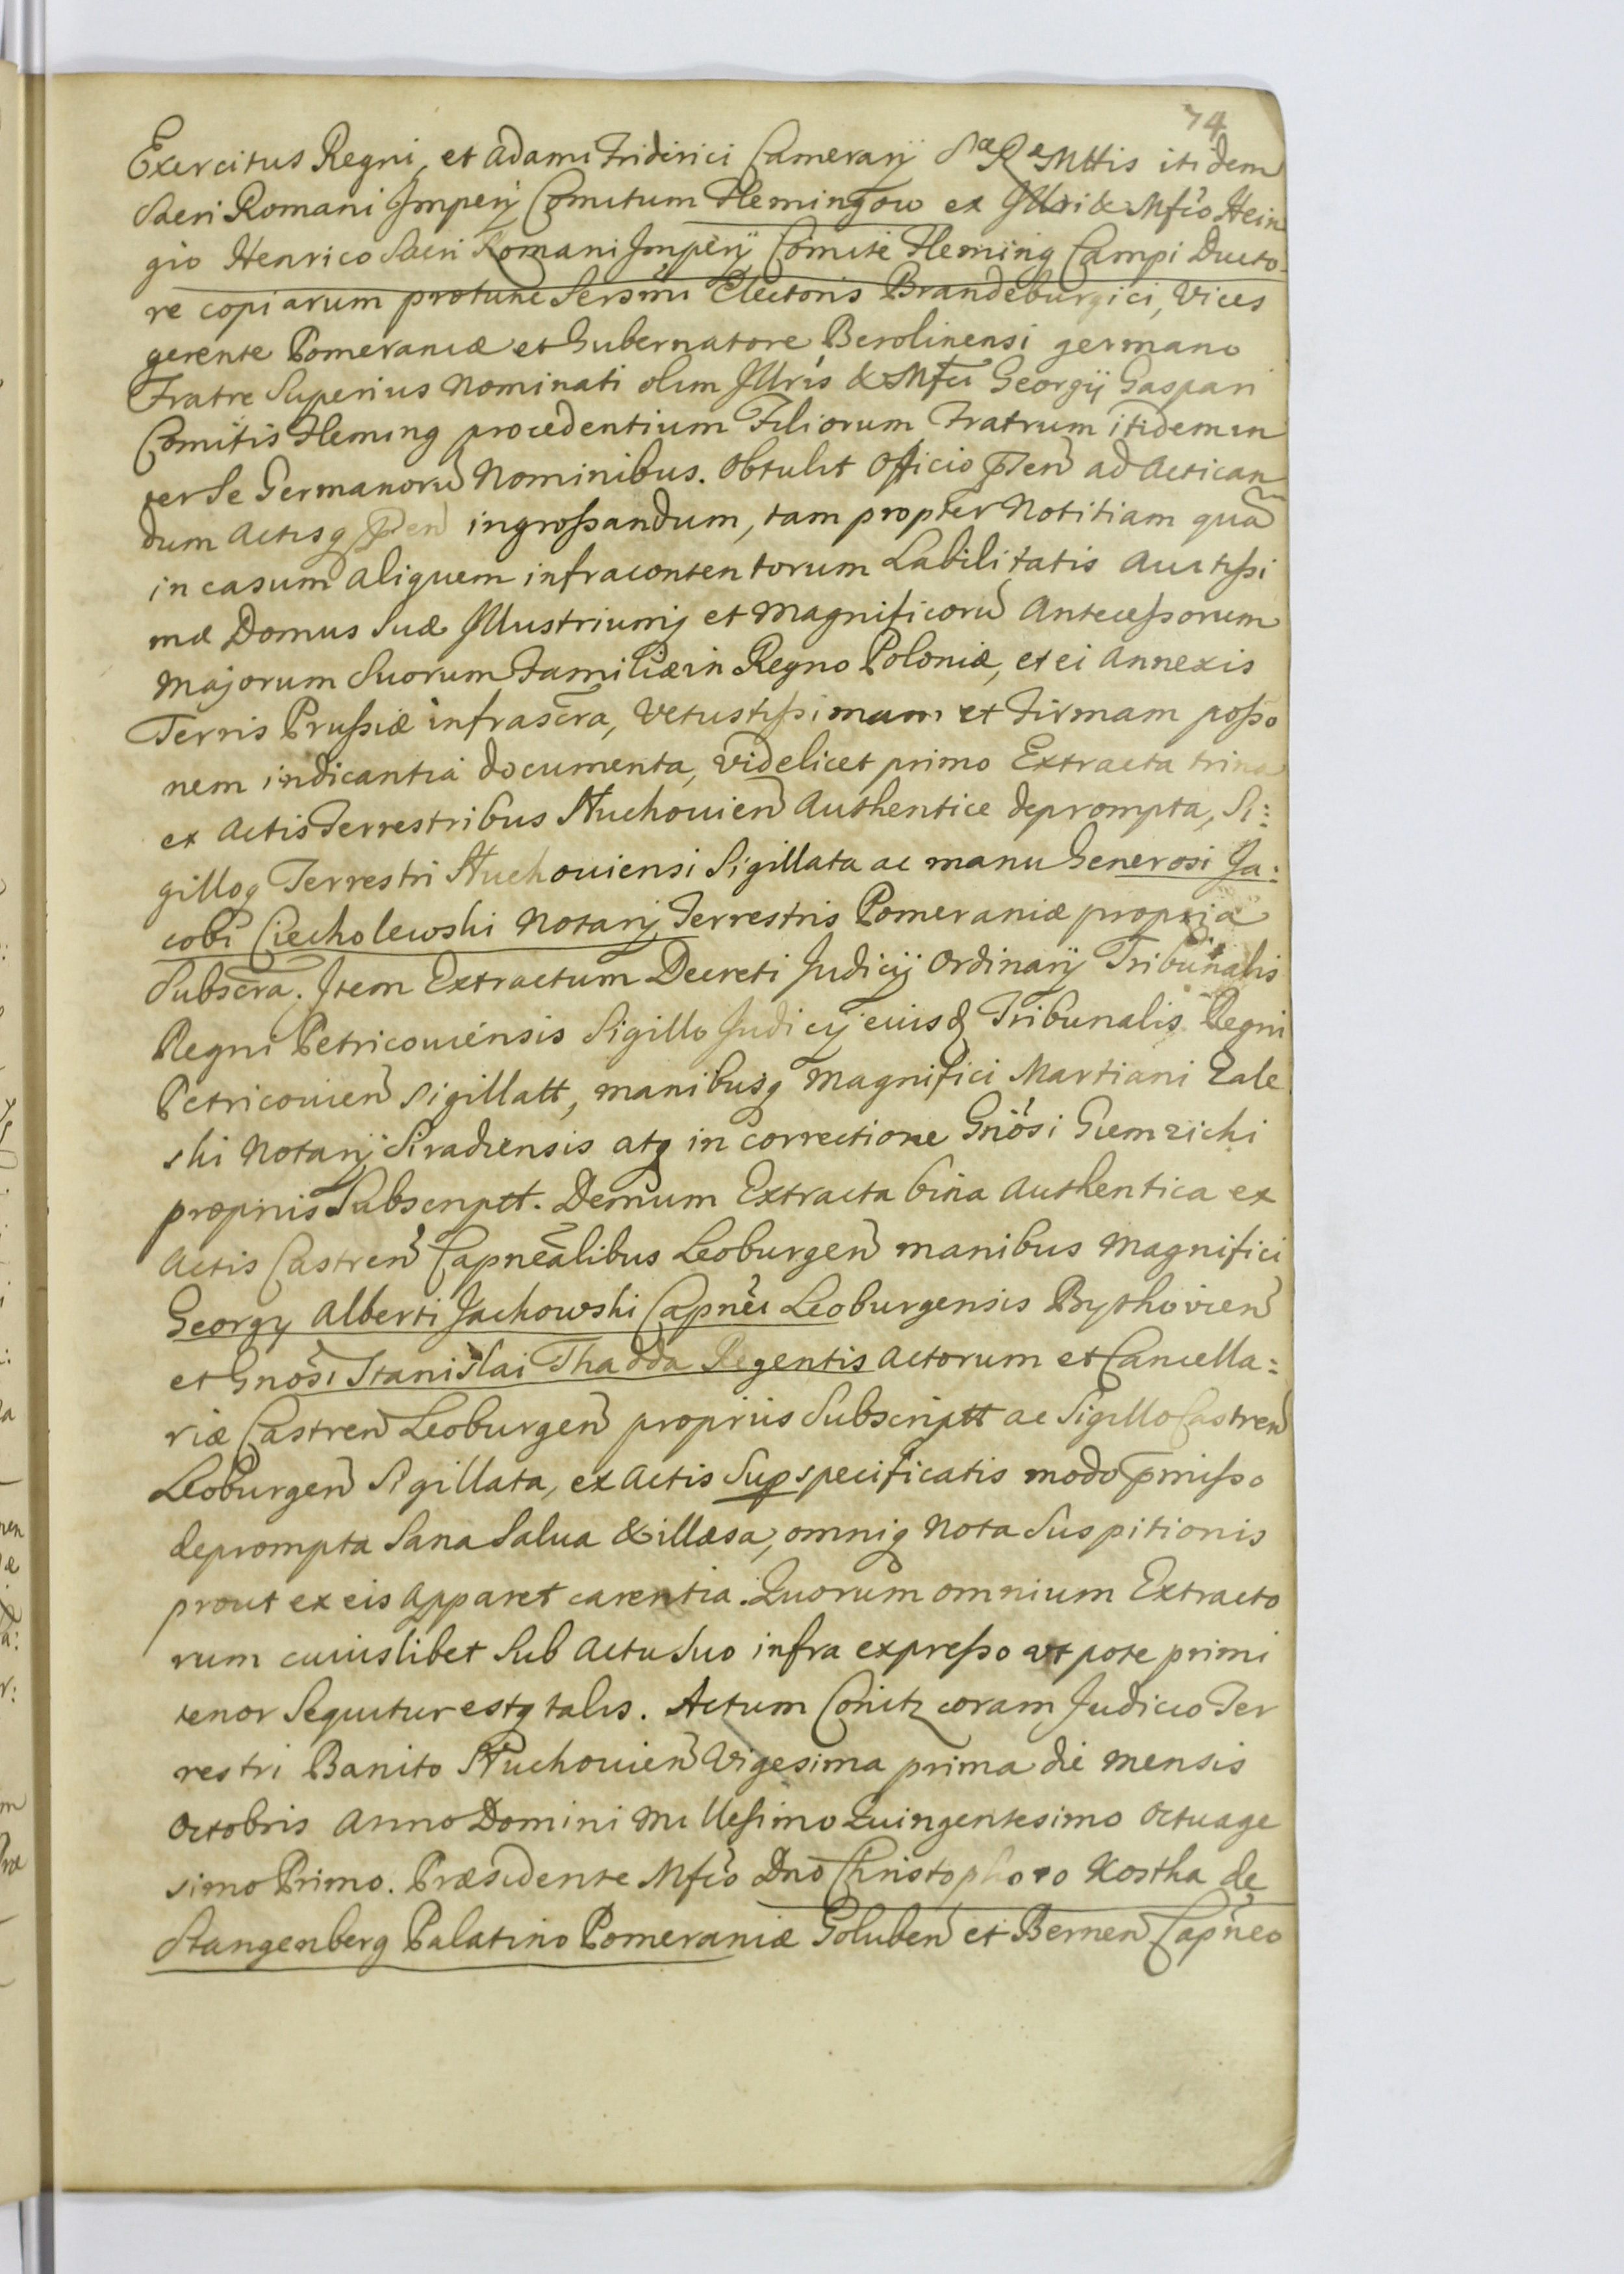 74
Exercitus Regni, et Adami Fridirici Camerarÿ Sᵃᵉ Rᵃᵉ Mttis itidem
Sacri Romani Imperÿ Comitum Flemingow ex Illri & Mfco Hein
gio Henrico Sacri Romani Imperÿ Comite Fleming Campi Ducto-
re copiarum protunc Sersmi Electoris Brandeburgici, Vices
gerente Pomeraniæ et Gubernatore Berolinensi germano
Fratre Superius Nominati olim Illris & Mfci Georgÿ Gaspari
Comitis Fleming procedentium Filiorum Fratrum itidem in
ter Se Germanorū Nominibus. Obtulit Officio p̄sen̄ ad Actican
dum Actisq p̄sen̄ ingrossandum, tam propter Notitiam quā
in casum aliquem infracontentorum Labilitatis Auctissi
mæ Domus Suæ Illustriumq et Magnificorū Antecessorum
Majorum Suorum Familiæ in Regno Poloniæ, et ei Annexis
Terris Prussiæ infrascra, Vetustissimam et Firmam posso
nem indicantia documenta, videlicet primo Extracta trina
ex Actis Terrestribus Sluchouien̄ Authentice deprompta, Si:
gilloq Terrestri Sluchouiensi Sigillata ac manu Generosi Ja:
cobi Ciecholewski Notarÿ Terrestris Pomeraniæ propria
Subscra. Item Extractum Decreti Judicÿ Ordinarÿ Tribunalis
Regni Petricouiensis Sigillo Judicÿ eiusd Tribunalis Regni
Petricouien̄ sigillatt, manibusq Magnifici Martiani Zale
ski Notarÿ Siradiensis atq in correctione Gnosi Giemzichi
proprijs Subscriptt. Demum Extracta bina Authentica ex
Actis Castren̄ Capnealibus Leoburgen̄ manibus Magnifici
Georgÿ Alberti Jackowski Capnei Leoburgensis Bythovien̄
et Gnosi Stanislai Thadda Regentis Actorum et Cancella:
riæ Castren̄ Leoburgen̄ proprijs Subscriptt ac Sigillo Castren̄
Leoburgen̄ Sigillata, ex Actis Sup specificatis modo p̄misso
deprompta Sana Salua & illæsa, omniq Nota Suspitionis
prout ex eis apparet carentia. Quorum omnium Extracto
rum cuiuslibet Sub Actu Suo infra expresso ut pote primi
tenor Sequitur estq talis. Actum Conitz coram Judicio Ter
restri Banito Sluchouien̄ Vigesima prima die mensis
Octobris Anno Domini Millesimo Quingentesimo Octuage
simo Primo. Præsidente Mfco Dno Christophoro Kostka de
Stangenberg Palatino Pomeraniæ Goluben̄ et Bernen̄ Capneo